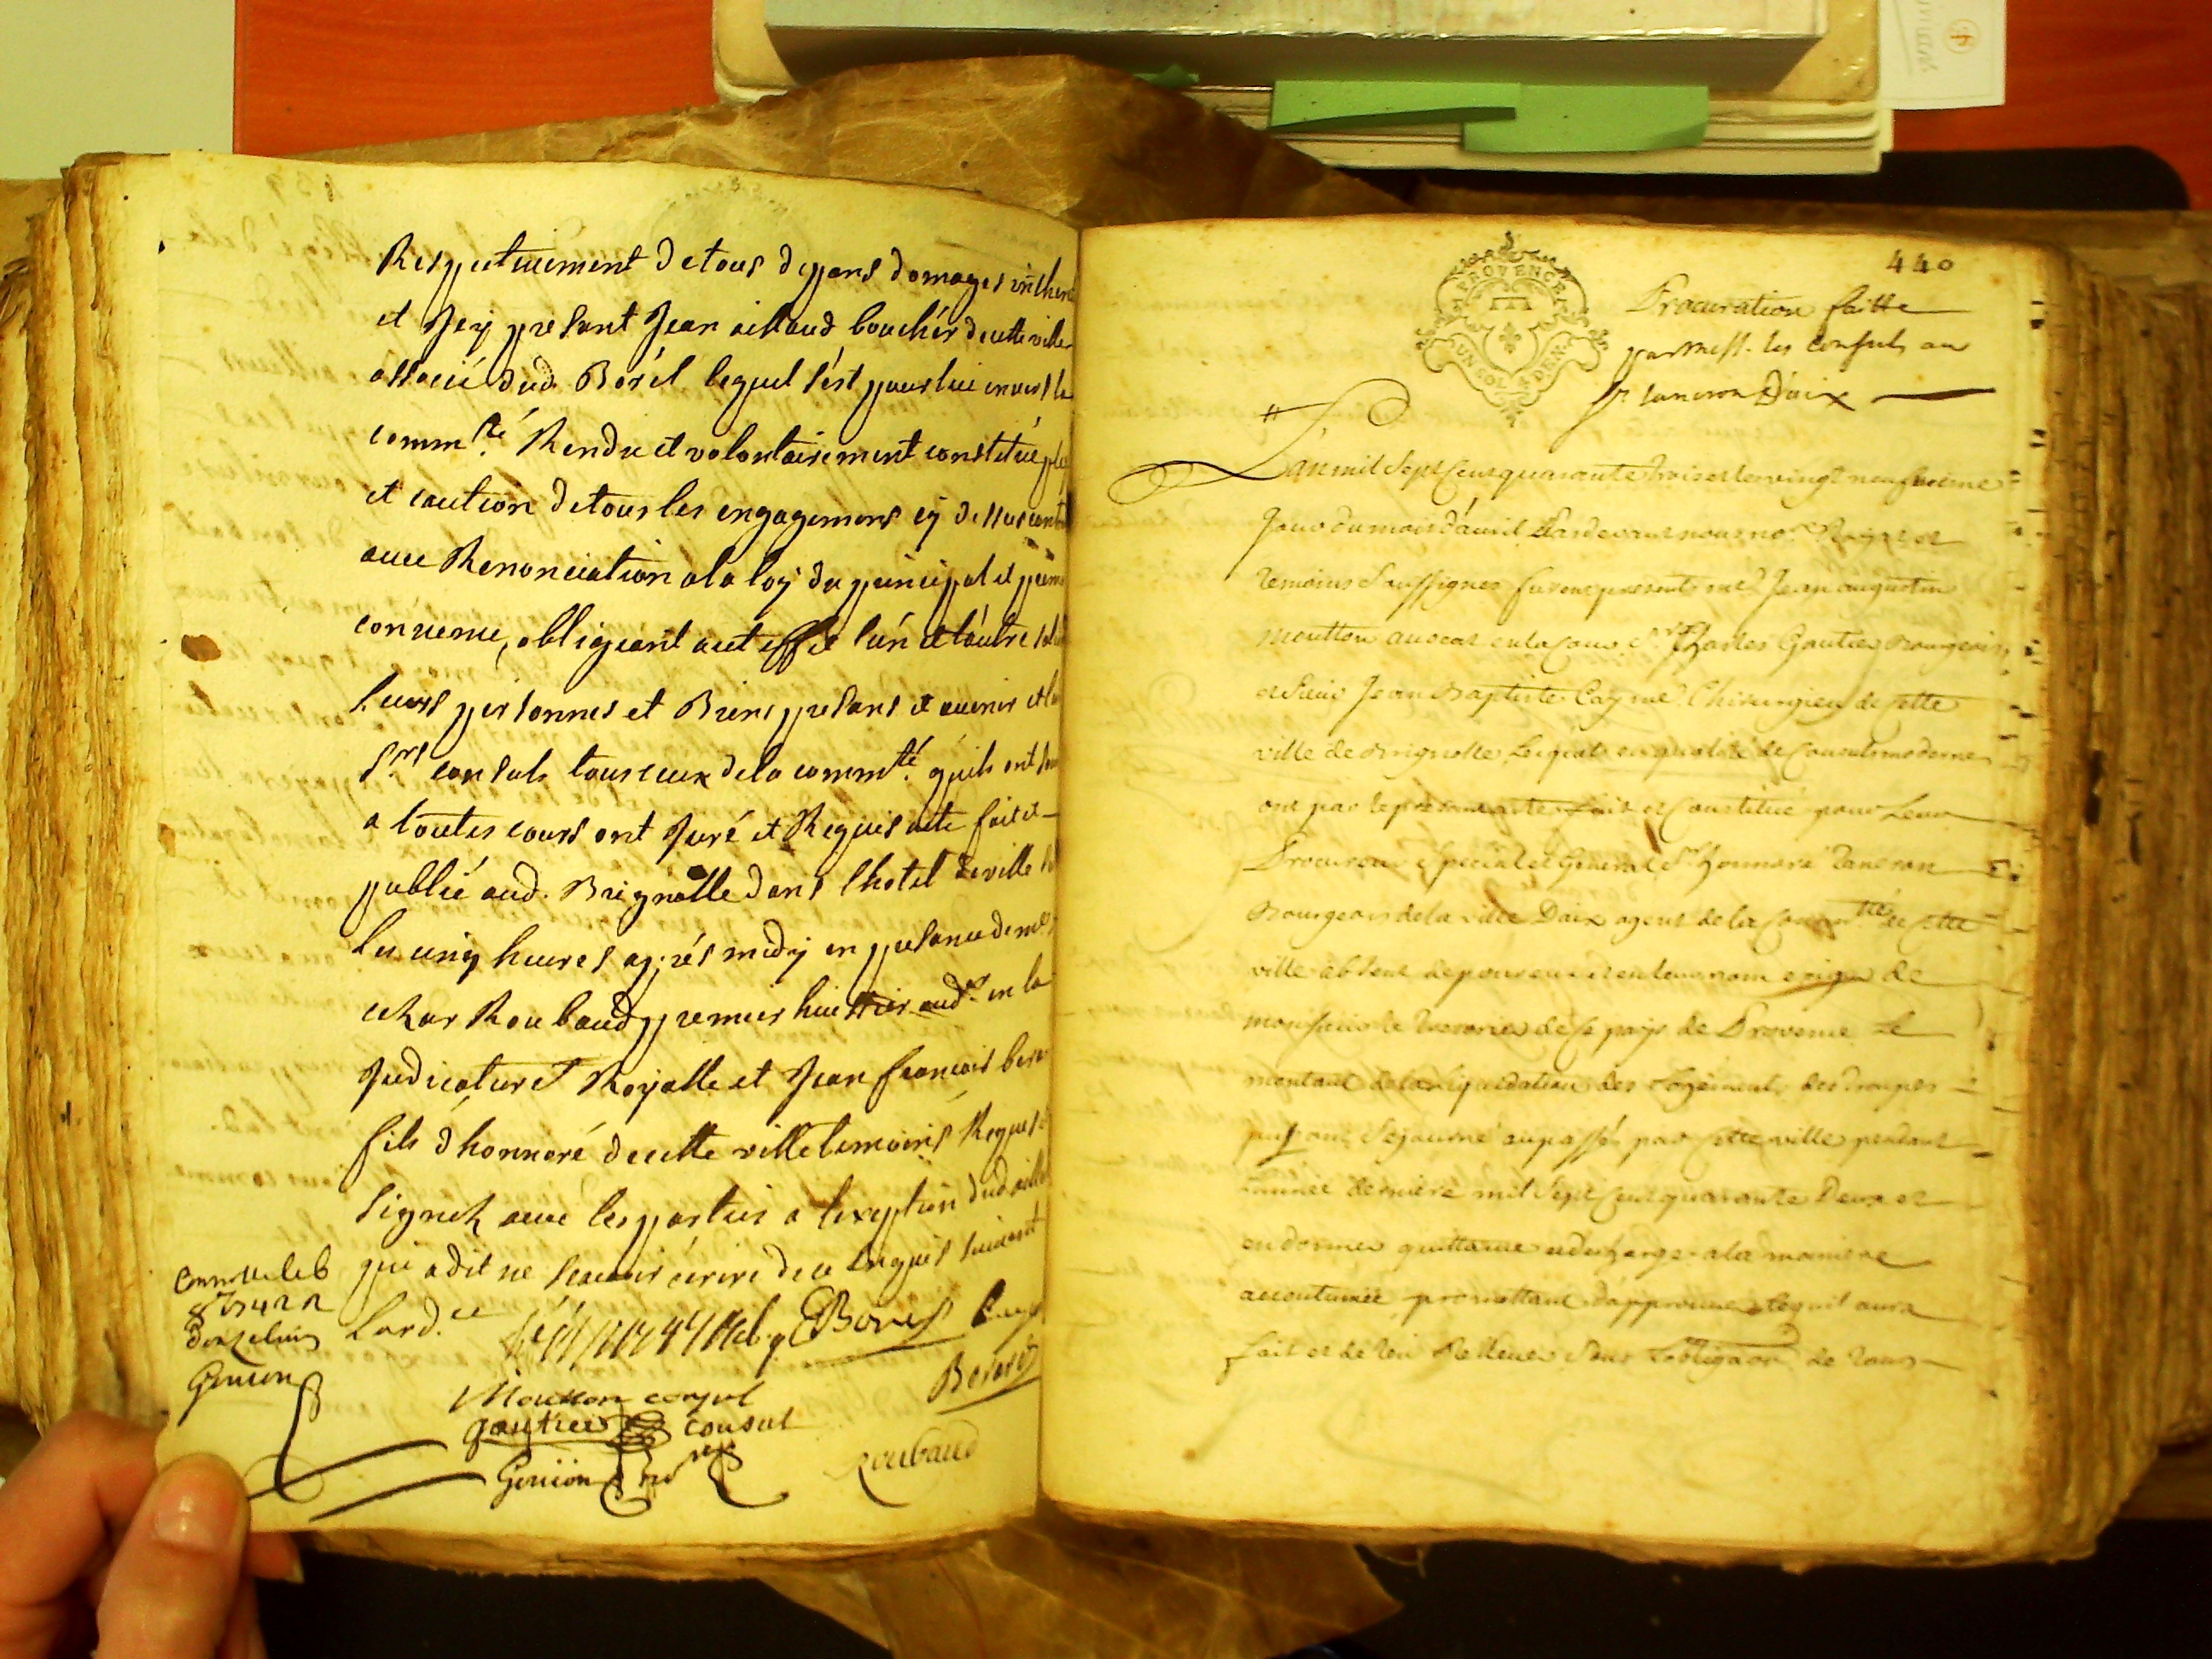 Respectivement de tous depans domages
et Jcy presant Jean aillaud bouchér de cette ville
associé dud. Borél lequel sést pour lui envers la
comm.té Rendu et volontairement constitué
et caution de tous les engagemens cy dessus
avec Renonciation a la loy du principal et
convenue, obligeant a cet effet lún et láutre
leurs personnes et Biens presans et avenir et
S.rs consuls tous ceux de la comm.té quils ont
a toutes cours ont Juré et Requis acte fait et
publié aud. Brignolle dans lhotel de ville
les cinq heures aprés midy en presance de
Roubaud premier huissier aud.r en la
Judicature Royalle et Jean francois
fils dhonnoré de cette ville temoins Requis
Signez avec les parties a lexeption dud
qui a dit ne scavoir écrire de ce enquis suivant
Lord.ce
Borel
Moutton consul
gautier consul
Roubaud
440
PROVENCE
UN SOL 4 DEN
Procuration faitte
par mess. les consuls au
Sr tancron Daix
Lan mil Sept Cent quarante trois et le vingt neufvieme
Jour du mois dávril Pardevant nous no.re Royal et
temoins Soussignes furent presents me Jean augustin
Moutton avocat en la Cour Sr Charles Gautier Bourgeois,
et Sieur Jean Baptiste Cayrue Chirurgien de Cette
ville de Brignolle Lesquels en qualité de Consuls modernes
ont par le present acte fait et Constitué pour Leur
Procureur Special et General Sr honnoré Tancron
Bourgeois de la ville Daix agent de la Comm.té de Cette
ville absent de pour eux et en leur nom exiger de
monsieur le tresorier de Ce pays de Provence Le
montant de la liquidation des Logements des troupes
qui ont Sejourné ou passés par Cette ville pendant
Lannée derniere mil Sept Cent quarante Deux et
en donner quittance et decharge a la maniere
accoutumée promettant dápprouver Ce quil aura
fait et de Len Relever Sous Lobligaon de tous